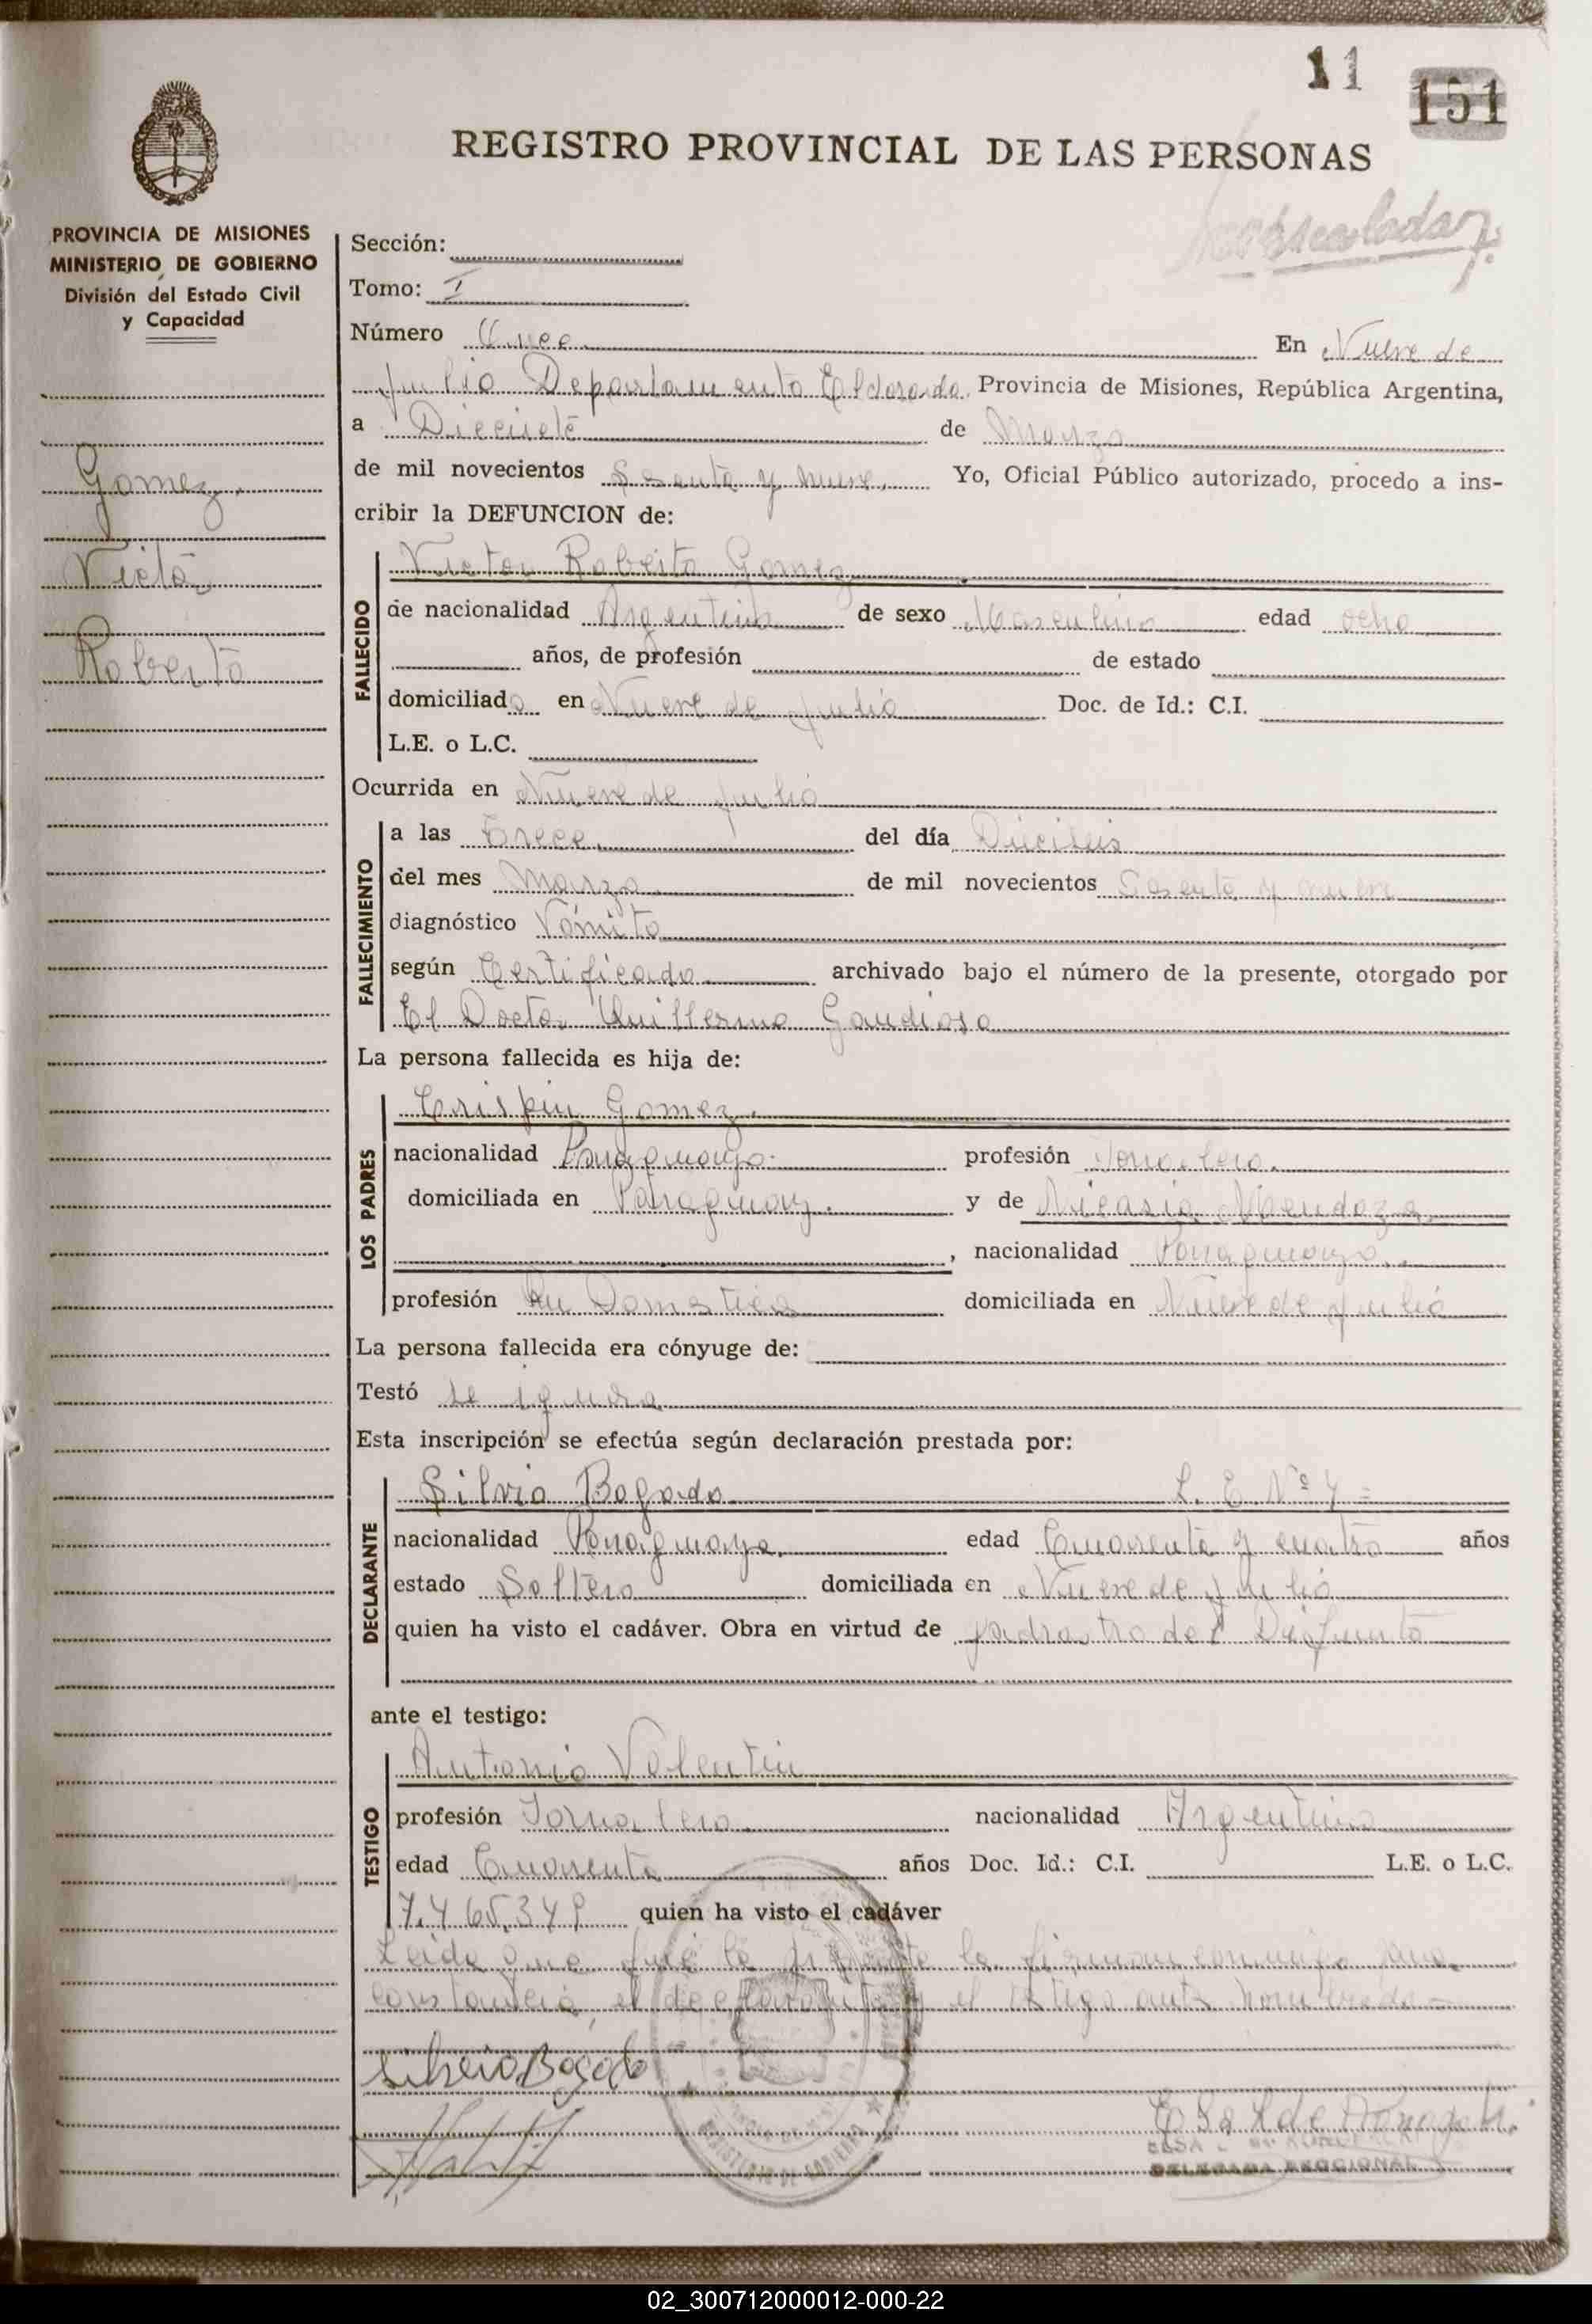 11
151
REGISTRO PROVINCIAL DE LAS PERSONAS
PROVINCIA DE MISIONES
MINISTERIO DE GOBIERNO
División del Estado Civil
y Capacidad
Gomez,
Victor
Roberto
Sección:
Tomo: I
Número Once En Nueve de
Julio Departamento Eldorado, Provincia de Misiones, República Argentina,
a Diecisiete de Marzo
de mil novecientos Sesenta y nueve, Yo, Oficial Público autorizado, procedo a ins-
cribir la DEFUNCION de:
FALLECIDO
Victor Roberto Gomez
de nacionalidad Argentino de sexo Masculino edad ocho
años, de profesión de estado
domiciliado en Nueve de Julio Doc. de Id.: C.I.
L.E. o L.C.
Ocurrida en Nueve de Julio
FALLECIMIENTO
a las Trece, del día Dieciseis
del mes Marzo de mil novecientos Sesenta y nueve
diagnóstico Vómito
según Certificado archivado bajo el número de la presente, otorgado por
El Doctor Guillermo Gaudioso
La persona fallecida es hija de:
LOS PADRES
Crispin Gomez.
nacionalidad Paraguayo. profesión Jornalero.
domiciliada en Paraguay. y de Nicasia Mendoza
, nacionalidad Paraguaya.
profesión domiciliada en Nueve de Julio
La persona fallecida era cónyuge de:
Testó se ignora
Esta inscripción se efectúa según declaración prestada por:
DECLARANTE
Silvio Bogado L. E. Nº
nacionalidad Paraguaya edad Cuarenta y cuatro años
estado Soltero domiciliada en Nueve de Julio
quien ha visto el cadáver. Obra en virtud de padrastro del Difunto
ante el testigo:
TESTIGO
Antonio Valentin
profesión Jornalero nacionalidad Argentino
edad Cuarenta años Doc. Id.: C.I. L.E. o L.C.
7.465.349 quien ha visto el cadáver
Leida que fué la presente la firman conmigo para
constancia, el declarante y el testigo ante nombrado=
Silvio Bogado
DELEGADA SECCIONAL
02_300712000012-000-22